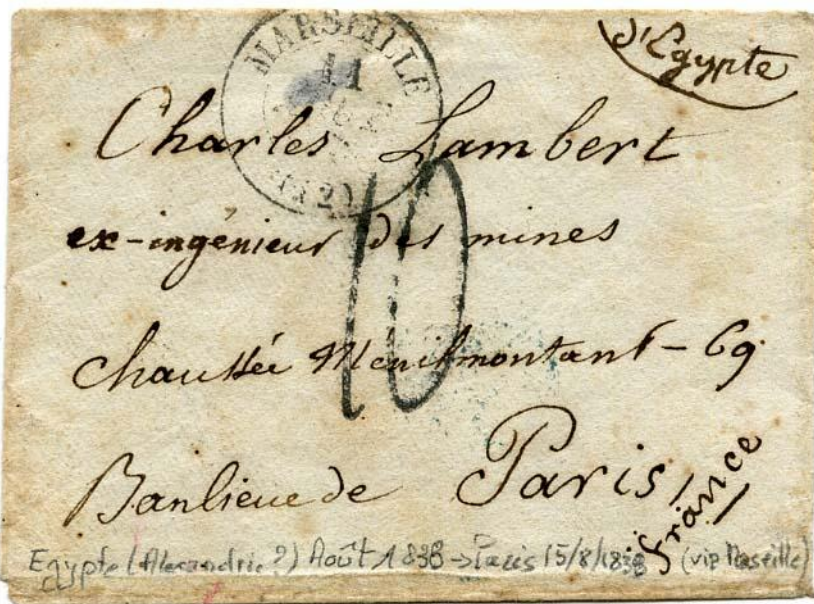 d'Egypte
MARSEILLE
11
(12)
Charles Lambert
10
ex-ingénieur des mines
chaussée Menilmontant - 69
Banlieue de Paris
france
Egypte (Alexandrie?) Août 1838 → Paris 15/8/1838 (via Marseille)